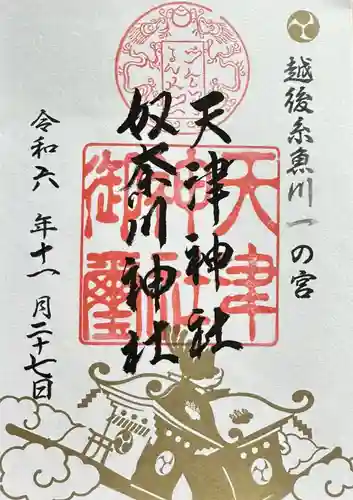 越後糸魚川一の宮
天津神社
奴奈川神社
令和六年十一月二十七日
天津
神社
御璽